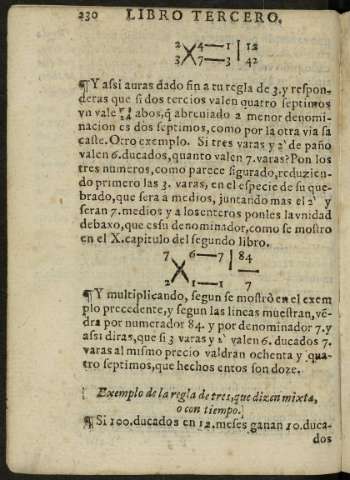 230 LIBRO TERCERO.
2 4—1 | 12
3 7—3 | 42
¶Y assi auras dado fin a tu regla de 3. y respon-
deras que si dos tercios valen quatro septimos
vn vale abos, q̃ abreuiado a menor denomi-
nacion es dos septimos, como por la otra via sa
caste. Otro exemplo. Si tres varas y 2' de paño
valen 6. ducados, quanto valen 7. varas? Pon los
tres numeros, como parece figurado, reduzien-
do primero las 3. varas, en el especie de su que-
brado, que sera a medios, juntando mas el 2' y
seran 7. medios y a los enteros ponles la vnidad
debaxo, que es su denominador, como se mostro
en el X. capitulo del segundo libro.
7 6—7 | 84
2 1—1 7
¶Y multiplicando, segun se mostrò en el exem
plo precedente, y segun las lineas muestran, vẽ-
dra por numerador 84. y por denominador 7. y
assi diras, que si 3 varas y 2' valen 6. ducados 7.
varas al mismo precio valdran ochenta y qua-
tro septimos, que hechos entos son doze.
Exemplo de la regla de tres, que dizen mixta,
o con tiempo.
¶Si 100. ducados en 12. meses ganan 10. duca-
dos